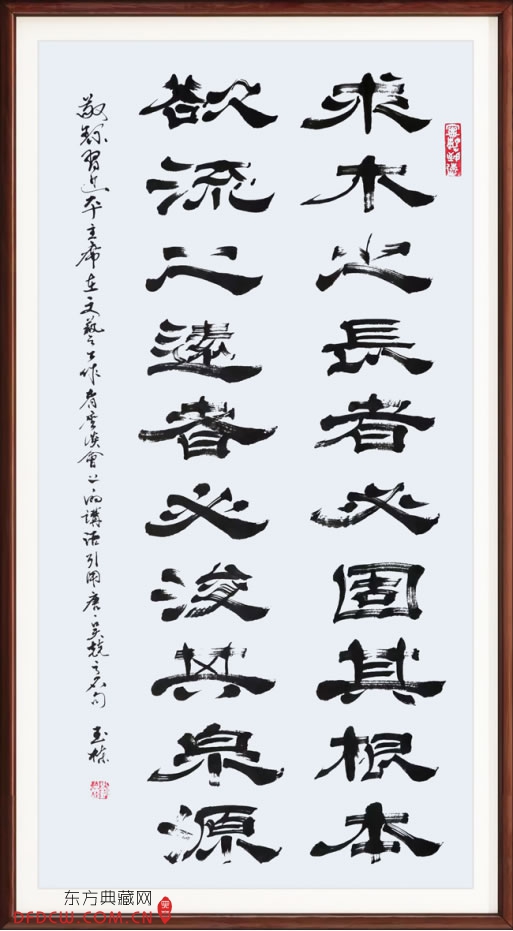 求木之長者必固其根本
欲流之遠者必浚其泉源
敬録習近平主席在文藝工作者座谈會上的講话引用唐·吴兢之名句
东方典藏网
DFDCW.COM.CN